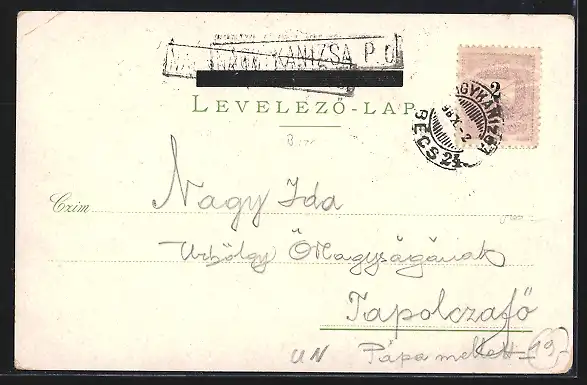 KANIZSA P. U
LEVELEZŐ-LAP
2
NAGYKANIZSA
98
BÉCS 24
Czim
Nagy Ida
Urhölgy Őnagyságának
Tapolczafő
UN Pápa mellett 19